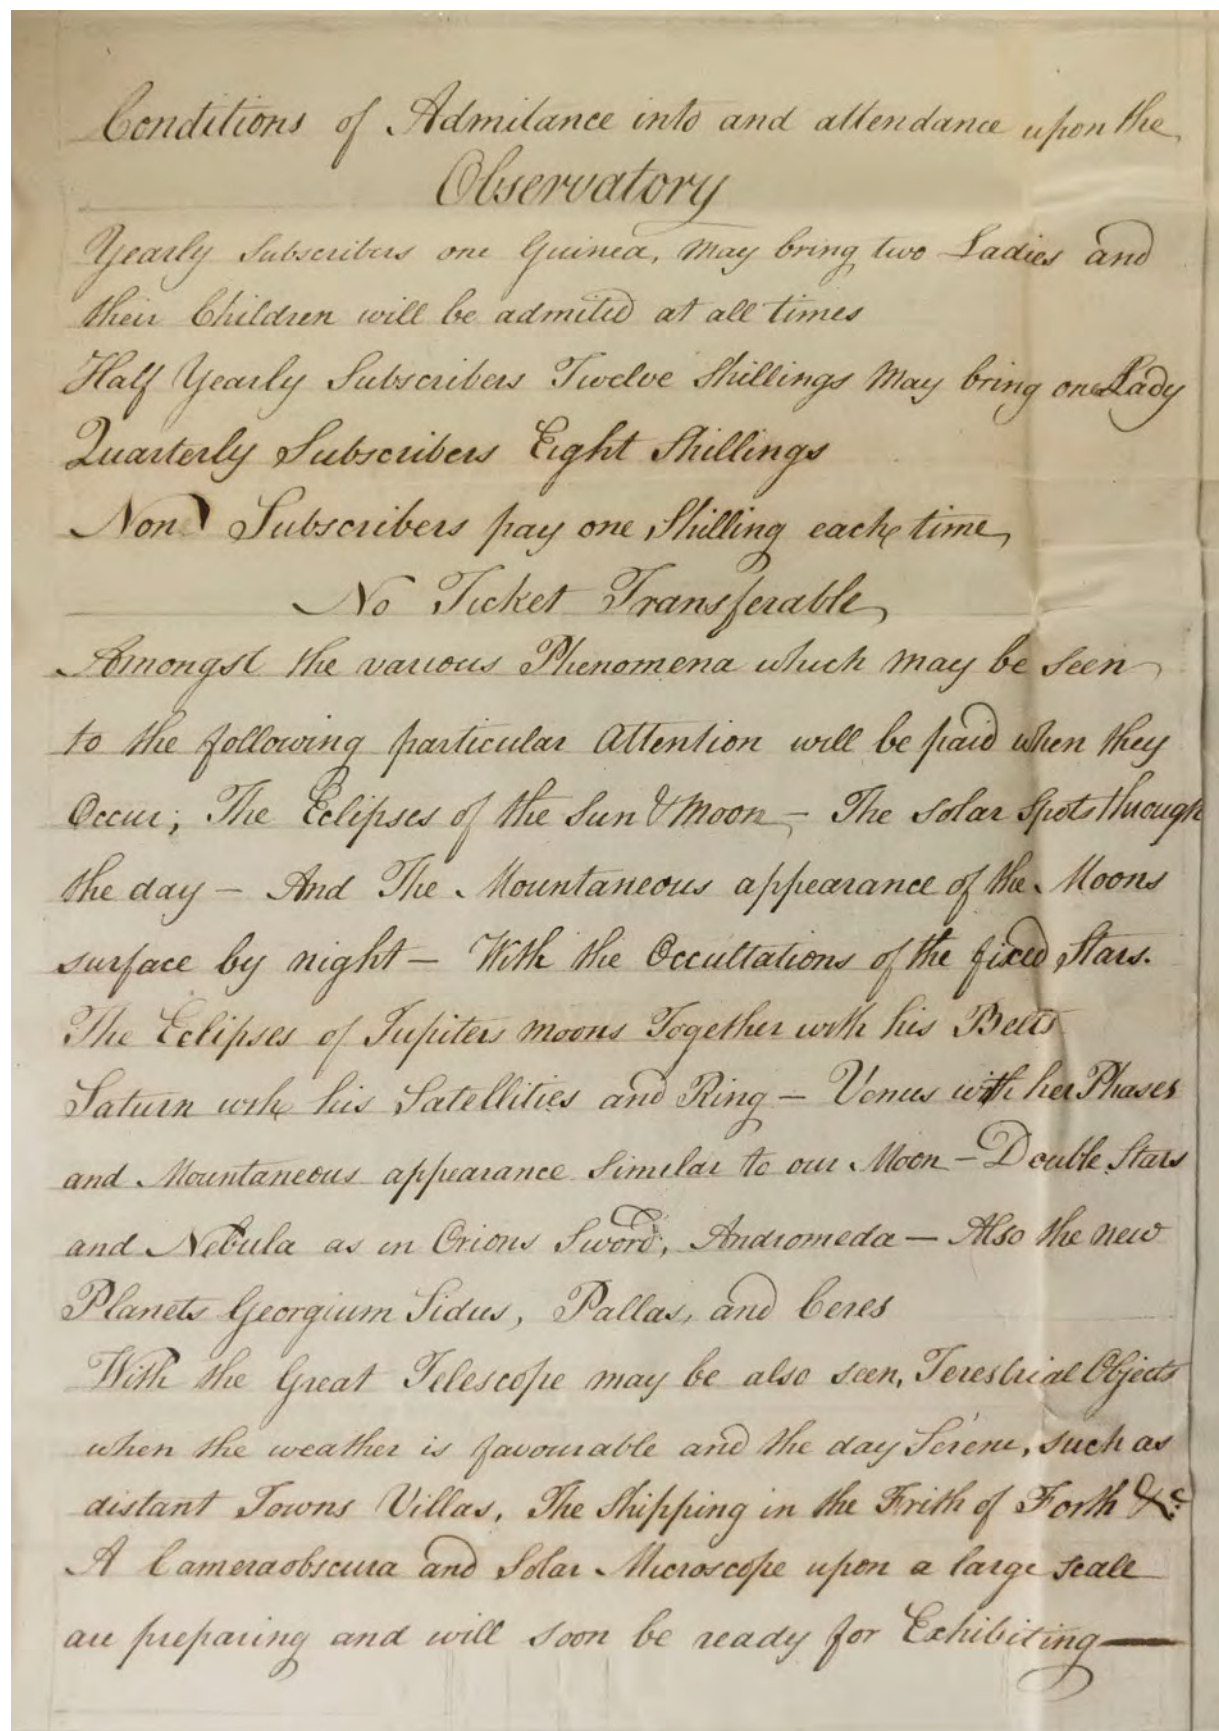 Conditions of Admitance into and attendance upon the
Observatory
Yearly Subscribers one Guinea, may bring two Ladies and
their Children will be admited at all times
Half Yearly Subscribers Twelve Shillings May bring one Lady
Quarterly Subscribers Eight Shillings
Non Subscribers pay one Shilling each time
No Ticket Transferable
Amongst the various Phenomena which may be seen
to the following particular Attention will be paid when they
Occur; The Eclipses of the Sun & Moon – The Solar Spots through
the day – And The Mountaneous appearance of the Moons
surface by night – With the Occultations of the fixed Stars.
The Eclipses of Jupiters moons Together with his Belts
Saturn with his Satellities and Ring – Venus with her Phases
and Mountaneous appearance Similar to our Moon – Double Stars
and Nebula as in Orions Sword, Andromeda – Also the new
Planets Georgium Sidus, Pallas, and Ceres
With the Great Telescope may be also seen, Terestrial Objects
when the weather is favourable and the day Serene, such as
distant Towns Villas, The Shipping in the Frith of Forth &c
A Cameraobscura and Solar Microscope upon a large scale
are preparing and will soon be ready for Exhibiting —